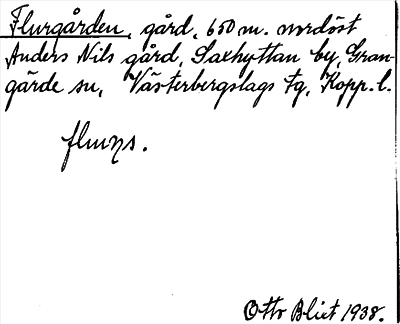 Flurgården, gård, 650 m. nordöst
Anders Nils gård, Saxhyttan by, Gran-
gärde sn, Västerbergslags tg, Kopp. l.
Otto Blixt 1938.